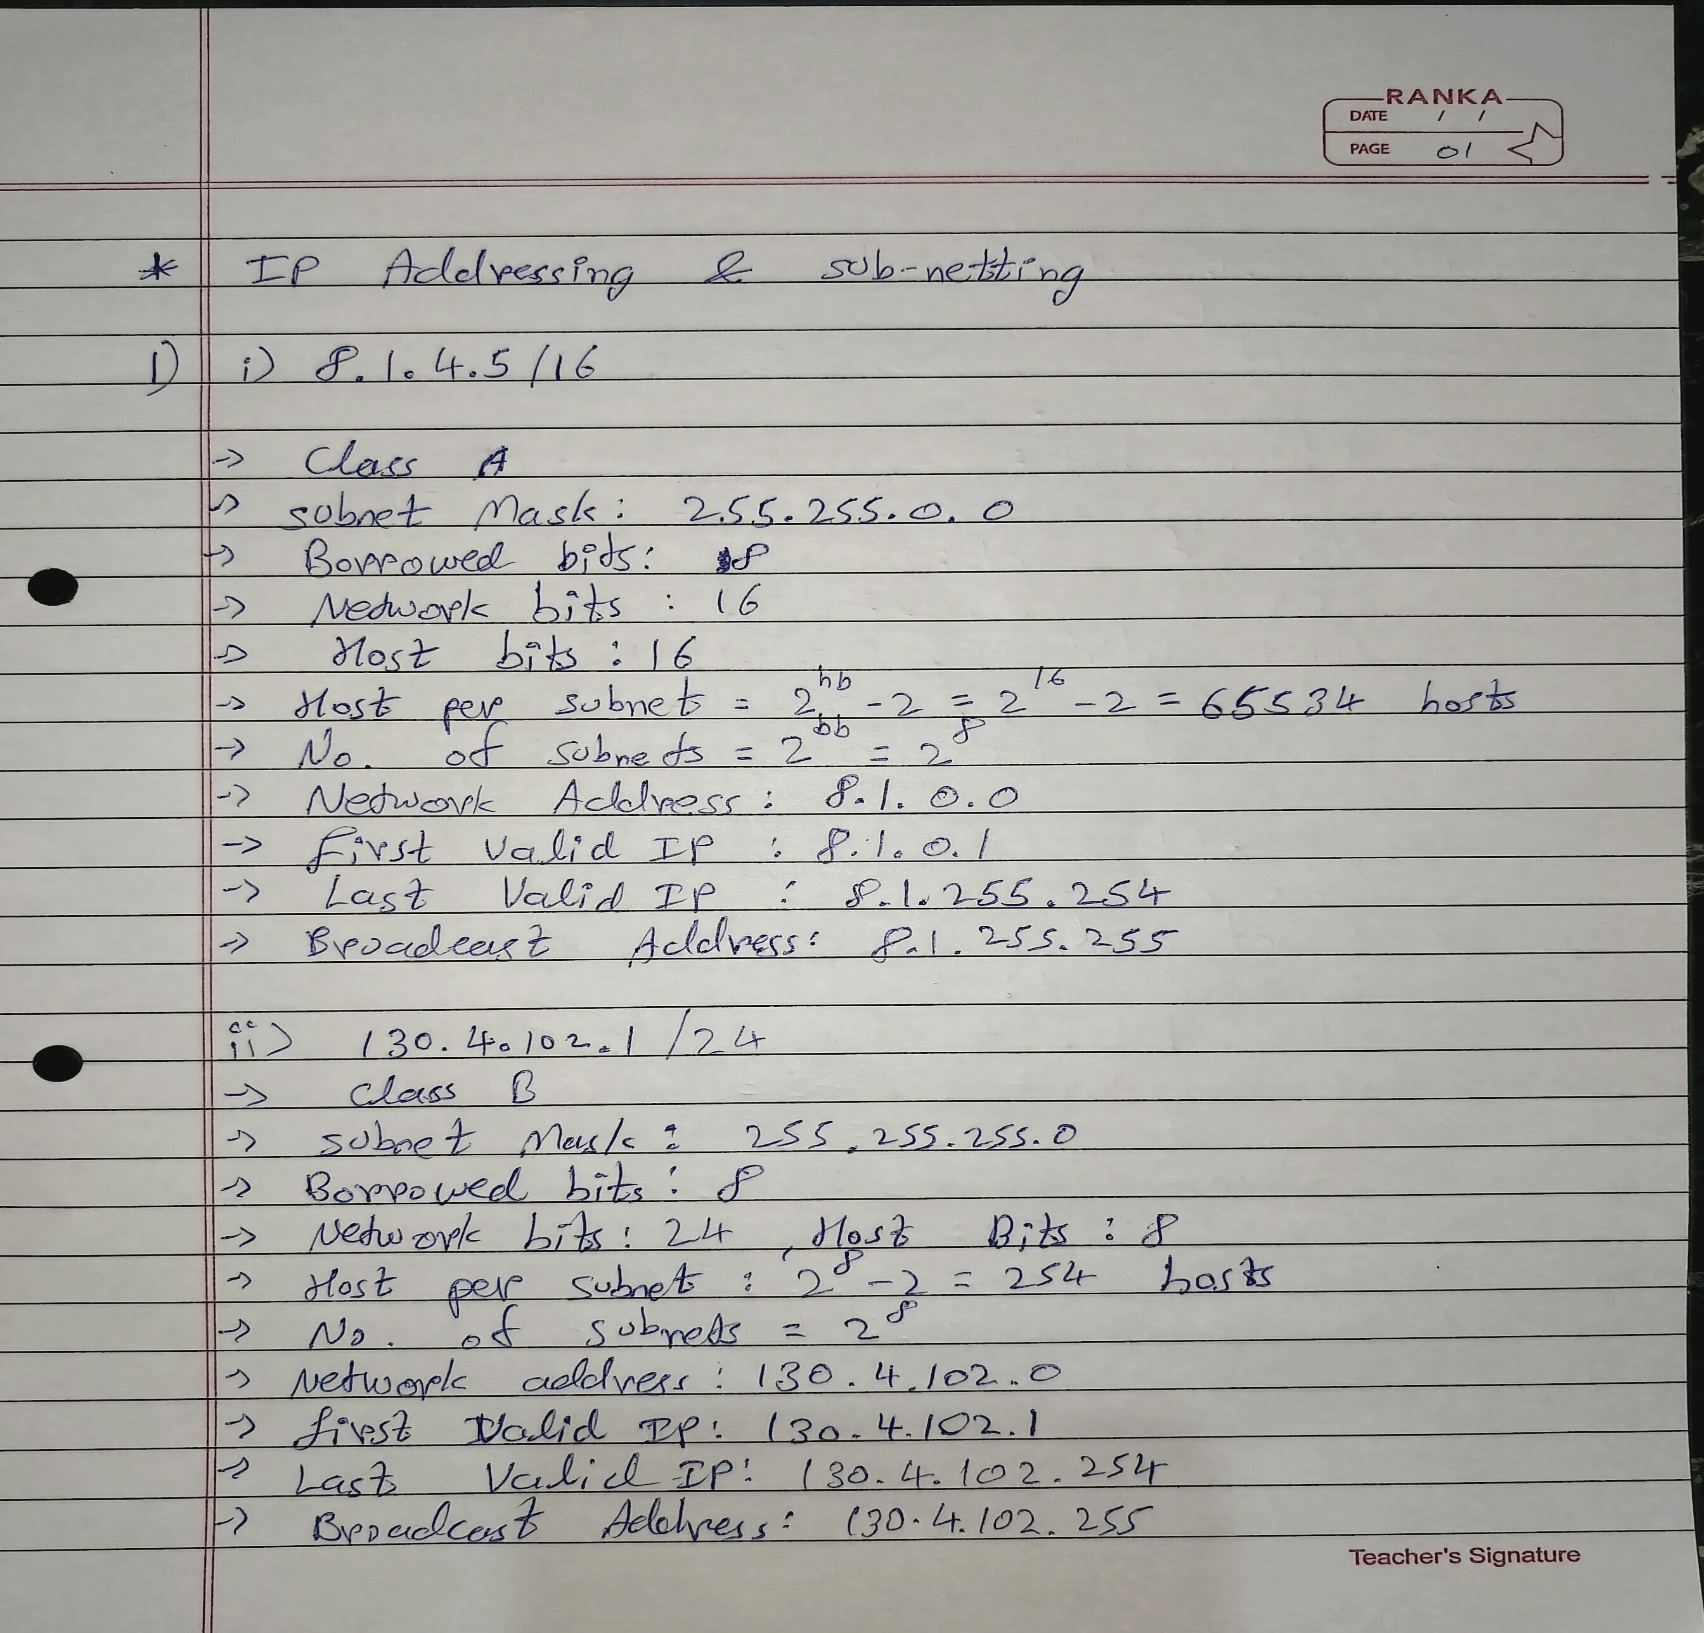 RANKA
DATE / /
PAGE 01
* IP Addressing & sub-netting
1) i) 8.1.4.5/16
-> Class A
-> subnet Mask: 255.255.0.0
-> Borrowed bits: 8
-> Network bits : 16
-> Host bits : 16
-> Host per subnet = 2^hb - 2 = 2^16 - 2 = 65534 hosts
-> No. of subnets = 2^bb = 2^8
-> Network Address: 8.1.0.0
-> first valid IP : 8.1.0.1
-> Last Valid IP : 8.1.255.254
-> Broadcast Address: 8.1.255.255
ii) 130.4.102.1 /24
-> Class B
-> subnet Mask : 255.255.255.0
-> Borrowed bits : 8
-> Network bits : 24 , Host Bits : 8
-> Host per subnet : 2^8 - 2 = 254 hosts
-> No. of subnets = 2^8
-> Network address : 130.4.102.0
-> first Valid IP: 130.4.102.1
-> Last Valid IP: 130.4.102.254
-> Broadcast Address: 130.4.102.255
Teacher's Signature